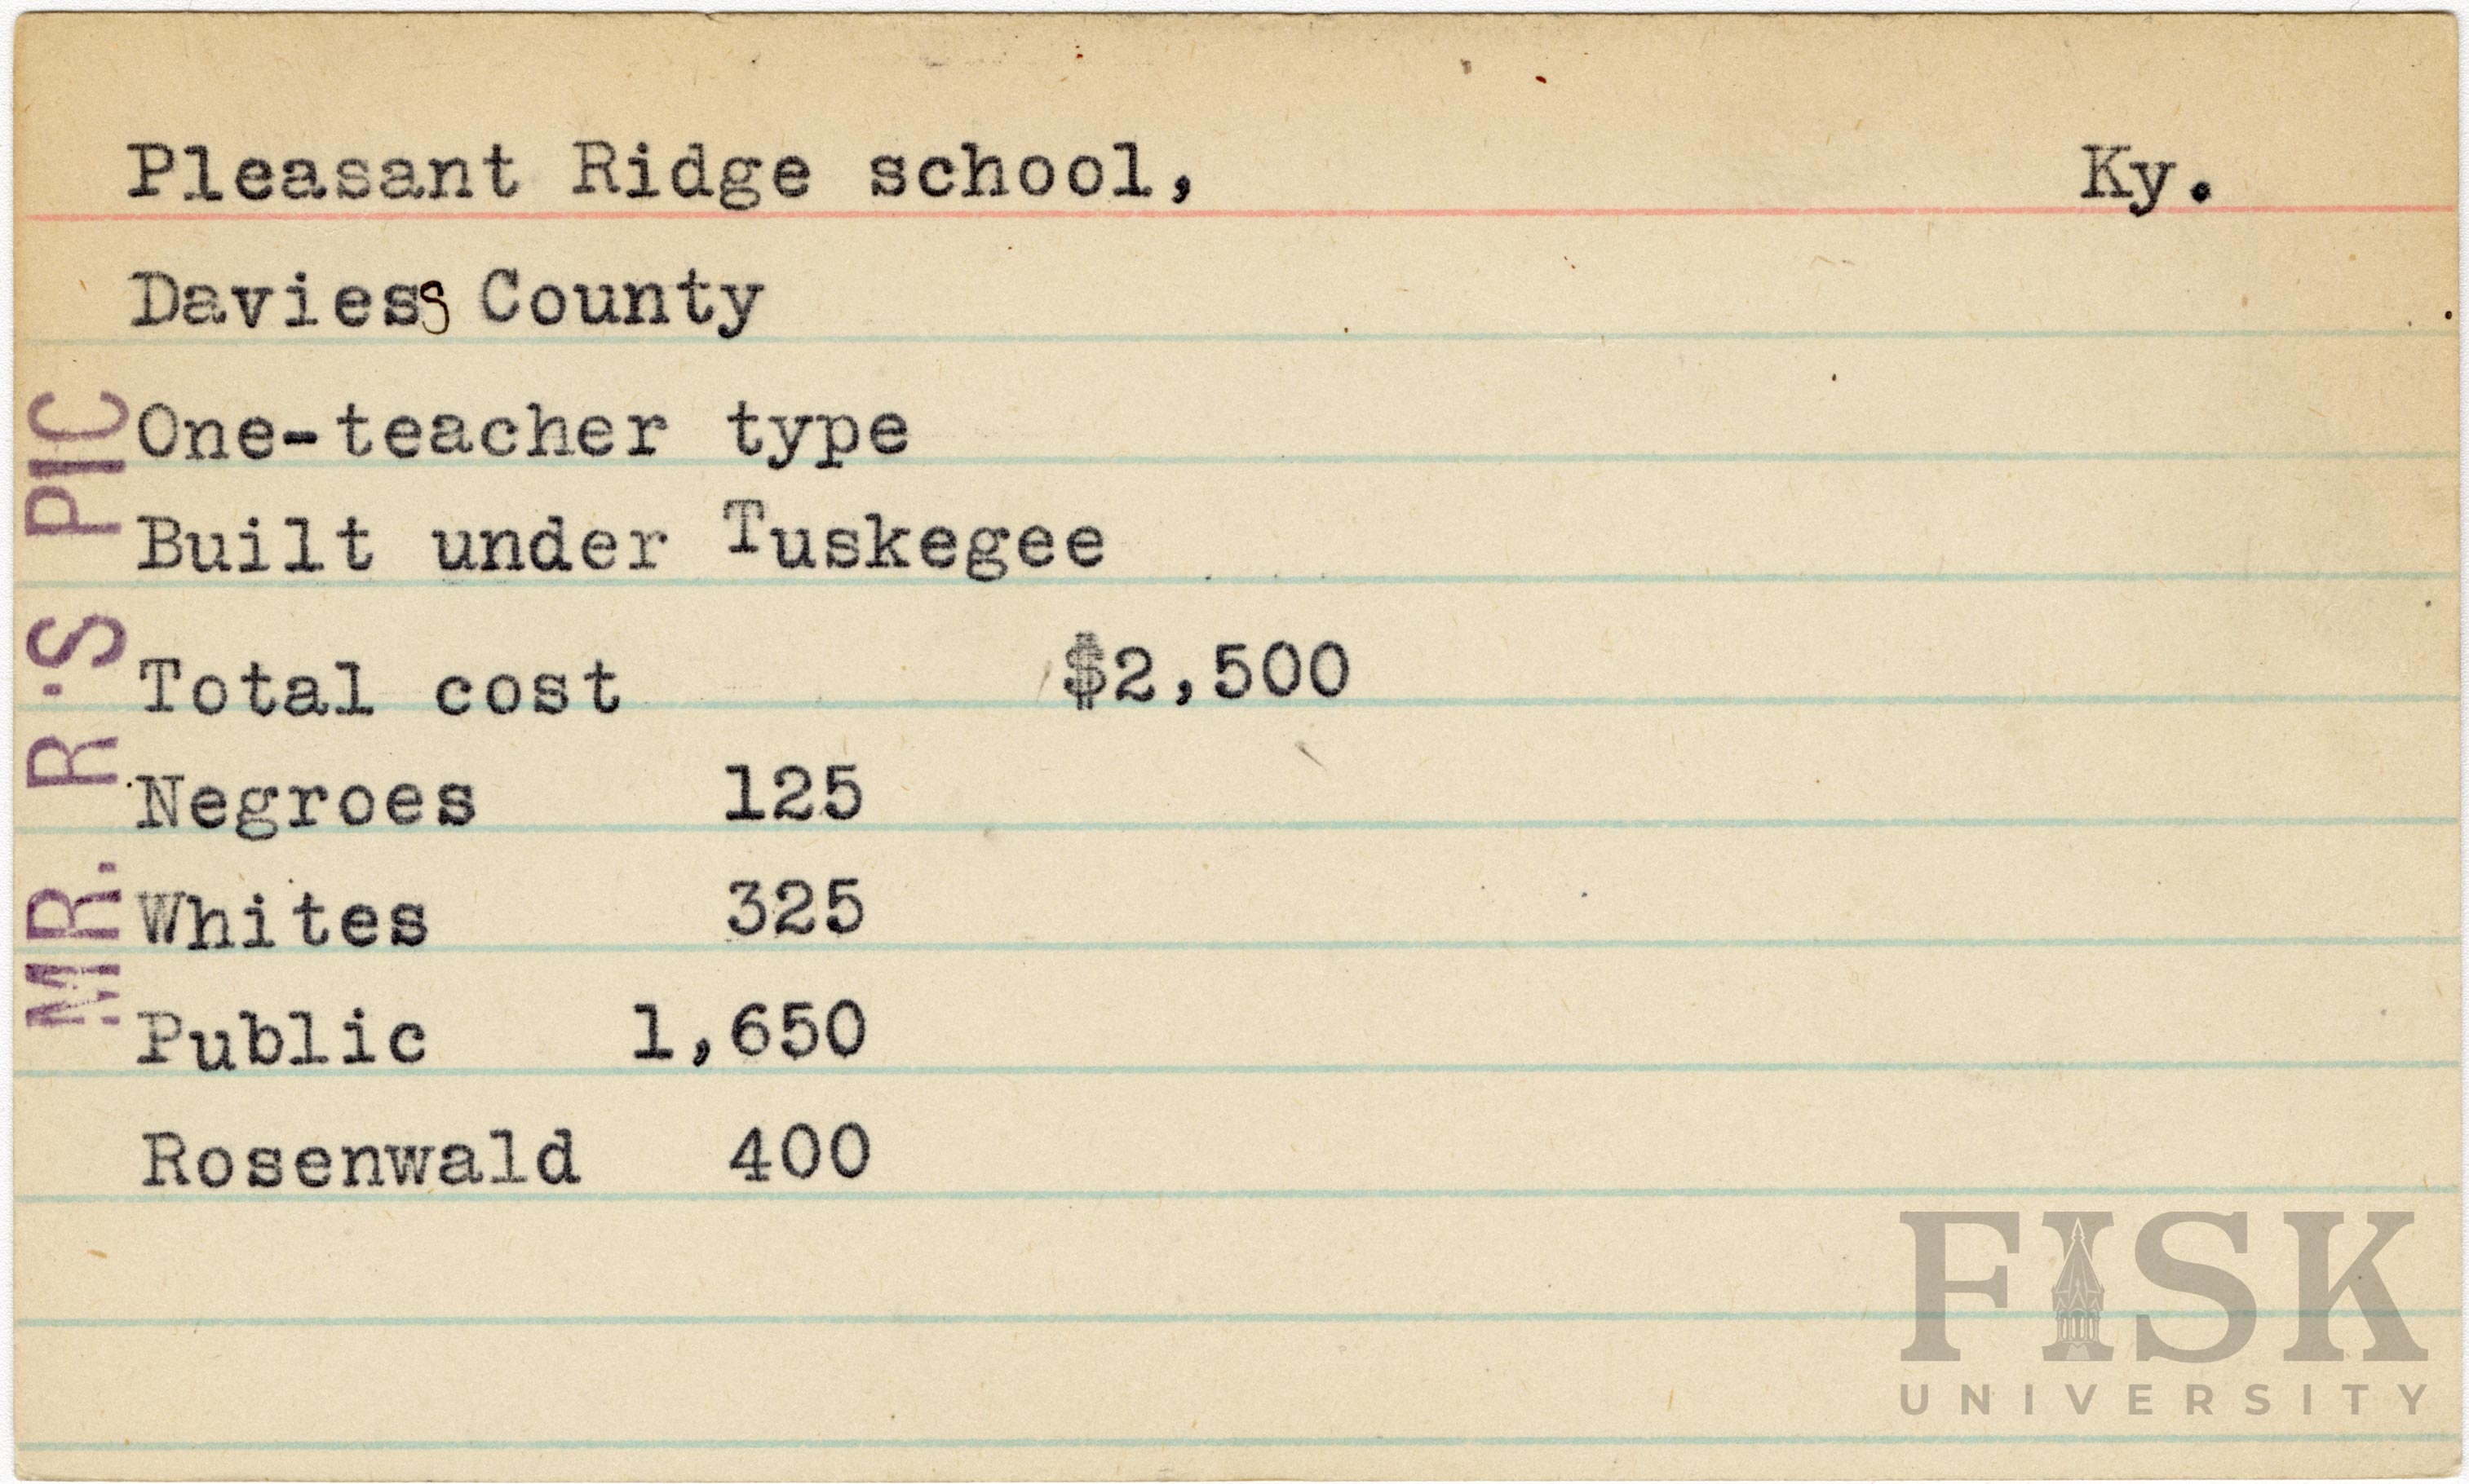 Pleasant Ridge school, Ky.
Daviess County
One-teacher type
Built under Tuskegee
Total cost $2,500
Negroes 125
Whites 325
Public 1,650
Rosenwald 400
MR. R'S PIC
FISK
UNIVERSITY